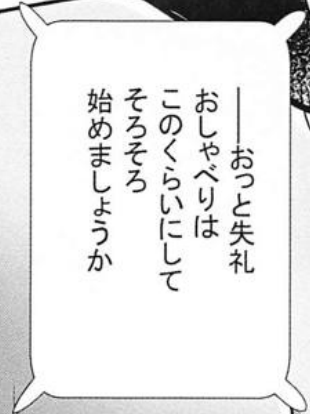 ──おっと失礼
おしゃべりは
このくらいにして
そろそろ
始めましょうか